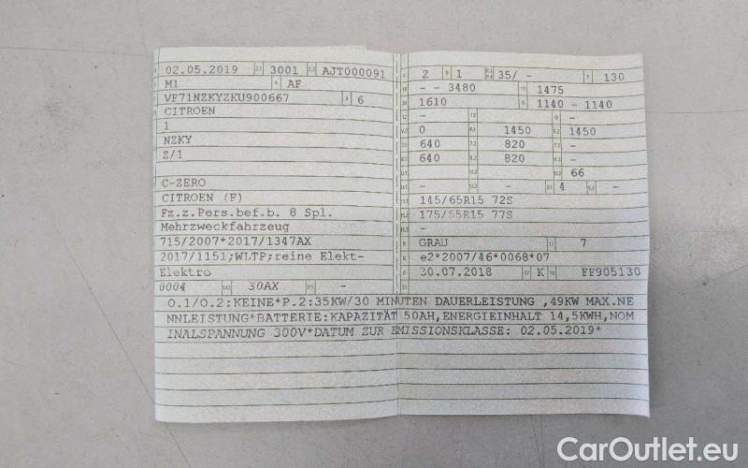 02.05.2019 3001 AJT000091
M1 AF
VF71NZKYZKU900667 6
CITROEN
1
NZKY
Z/1
C-ZERO
CITROEN (F)
Fz.z.Pers.bef.b. 8 Spl.
Mehrzweckfahrzeug
715/2007*2017/1347AX
2017/1151;WLTP;reine Elekt-
Elektro
0004 30AX -
2 1 35/ - 130
- - 3480 1475
1610 1140 - 1140
- -
0 1450 1450
640 820 -
640 820 -
- - 66
- - 4 -
145/65R15 72S
175/55R15 77S
-
-
GRAU 7
e2*2007/46*0068*07
30.07.2018 K FF905130
O.1/O.2:KEINE*P.2:35KW/30 MINUTEN DAUERLEISTUNG ,49KW MAX.NE
NNLEISTUNG*BATTERIE:KAPAZITÄT 50AH,ENERGIEINHALT 14,5KWH,NOM
INALSPANNUNG 300V*DATUM ZUR EMISSIONSKLASSE: 02.05.2019*
CarOutlet.eu